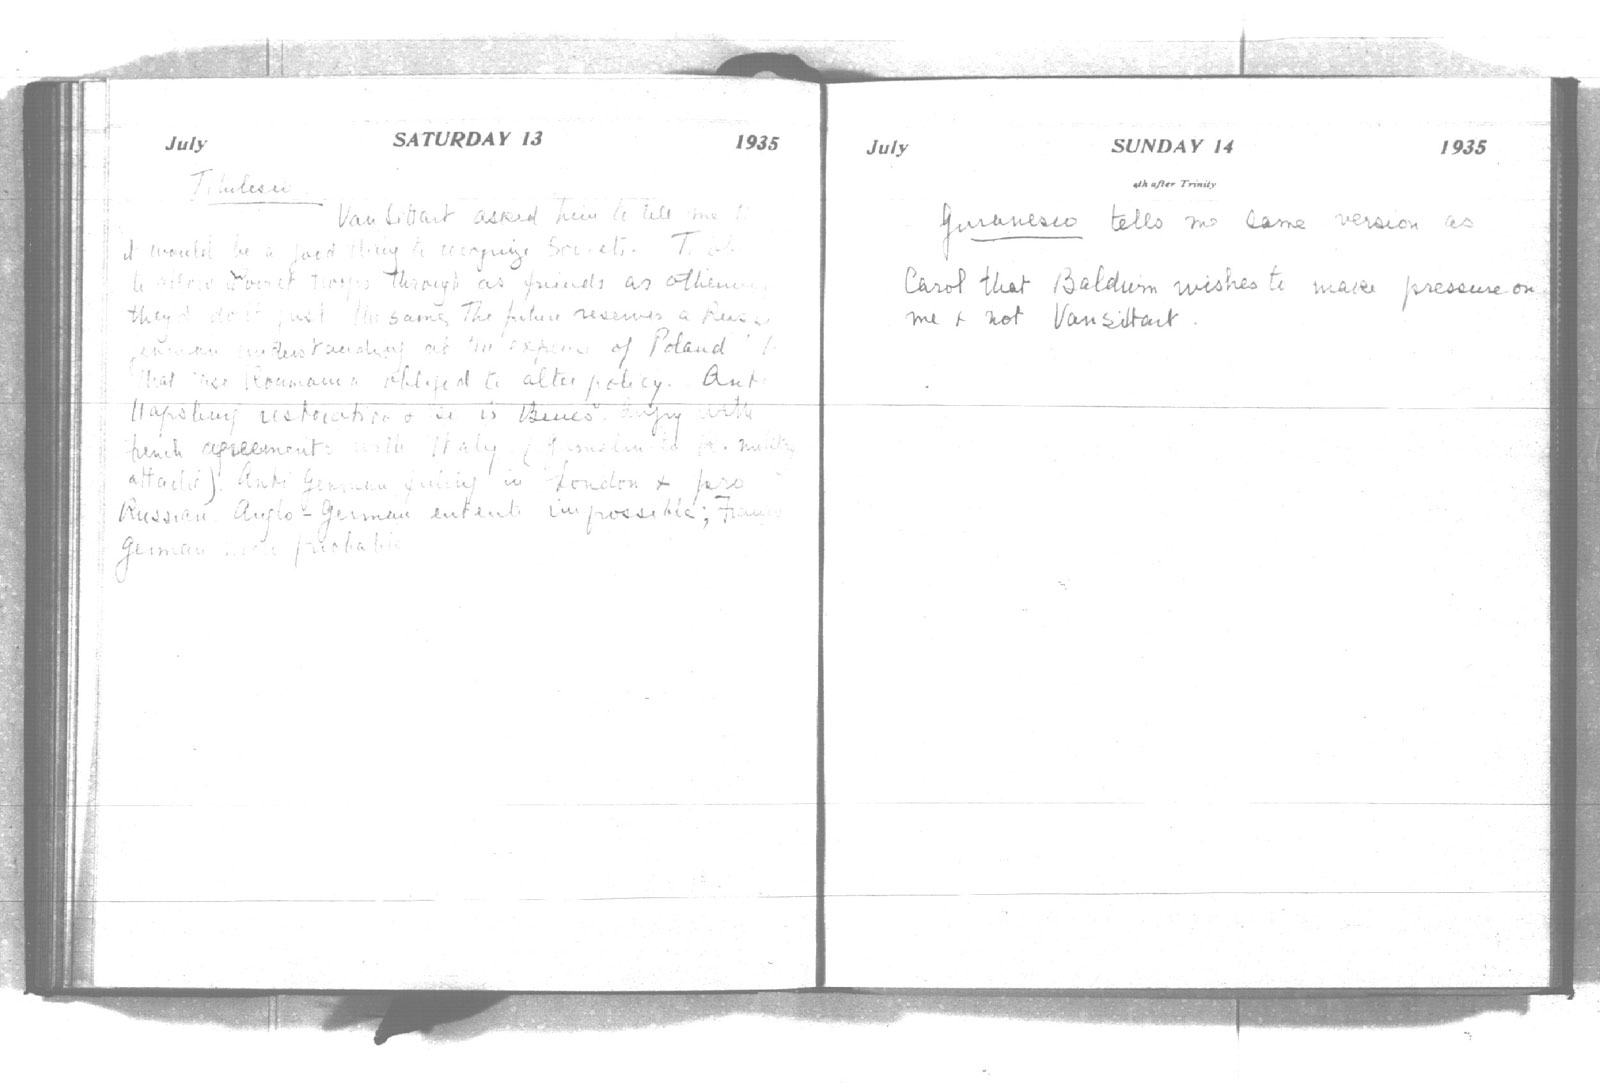 July SATURDAY 13 1935
Titulescu.
Vansittart asked him to tell me
it would be a good thing to recognize Soviets. T.
to allow Soviet troops through as friends as otherwise
they'd do it just the same. The future reserves a
german understanding at the expense of Poland
that case Roumania obliged to alter policy. Anti
Hapsburg restoration & so is Benes. Angry with
french agreements with Italy (Gamelin to military
attaché). Anti German feeling in London & pro
Russian. Anglo-German entente impossible; Franco
German more probable
July SUNDAY 14 1935
4th after Trinity
Guranesco tells me same version as
Carol that Baldwin wishes to make pressure on
me & not Vansittart.